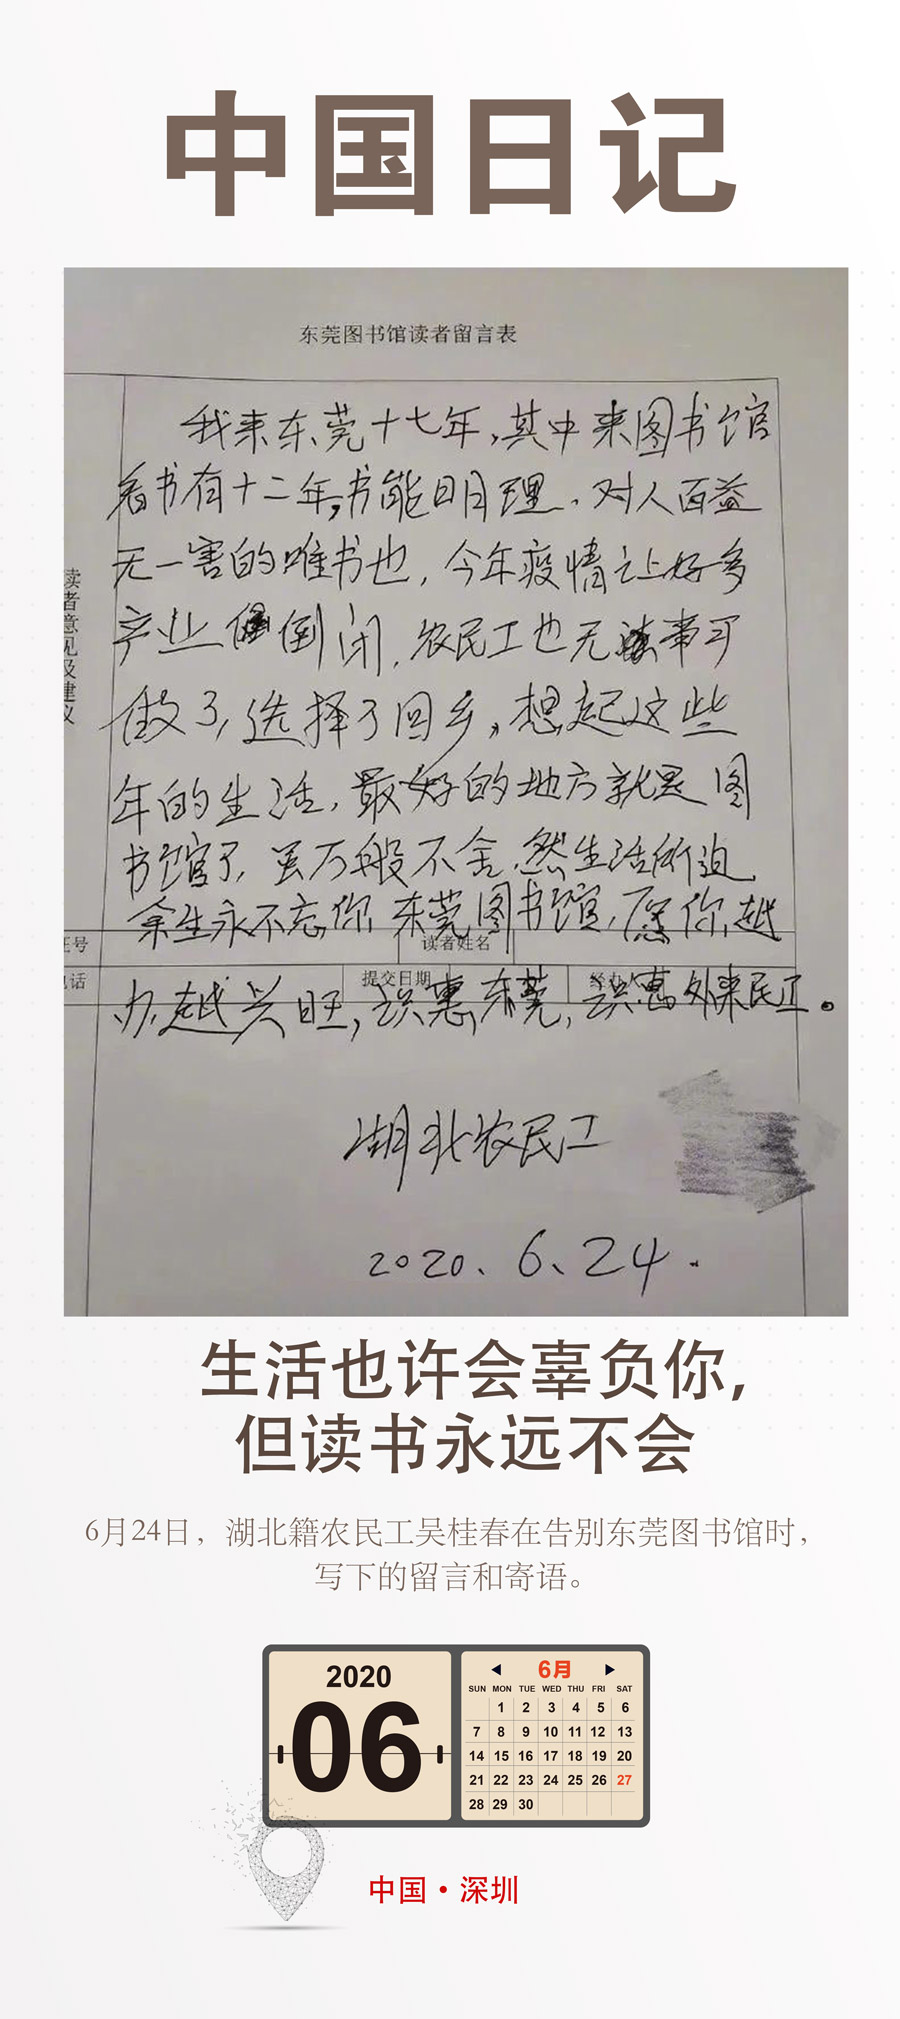 中国日记
东莞图书馆读者留言表
我来东莞十七年,其中来图书馆
看书有十二年,书能明理,对人百益
无一害的唯书也,今年疫情让好多
产业倒闭,农民工也无事可
做了,选择了回乡,想起这些
年的生活,最好的地方就是图
书馆了,虽万般不舍,然生活所迫
余生永不忘你东莞图书馆,愿你越
办越兴旺,识惠东莞,识惠外来民工。
读者意见及建议
号 读者姓名
话 提交日期 经办人
湖北农民工
2020.6.24.
生活也许会辜负你,
但读书永远不会
6月24日,湖北籍农民工吴桂春在告别东莞图书馆时,
写下的留言和寄语。
2020
06
6月
SUN MON TUE WED THU FRI SAT
1 2 3 4 5 6
7 8 9 10 11 12 13
14 15 16 17 18 19 20
21 22 23 24 25 26 27
28 29 30
中国·深圳